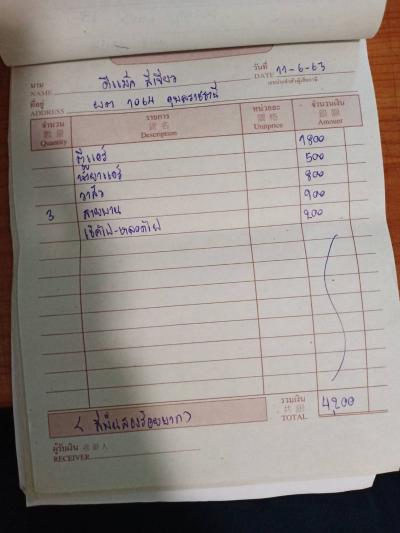 นาม NAME ดีแม็ก สีเขียว วันที่ DATE 11-6-63
ที่อยู่ ADDRESS ผตา 1064 อุบลราชธานี
จำนวน 數量 Quantity รายการ 貨名 Description หน่วยละ 價格 Unitprice จำนวนเงิน 銀額 Amount
ตู้แอร์ 1800
น้ำยาแอร์ 500
วาล์ว 800
3 สายพาน 900
เช็คไฟ-หลอดไฟ 200
รวมเงิน 共銀 TOTAL 4200
(สี่พันสองร้อยบาท)
ผู้รับเงิน 收銀人
RECEIVER